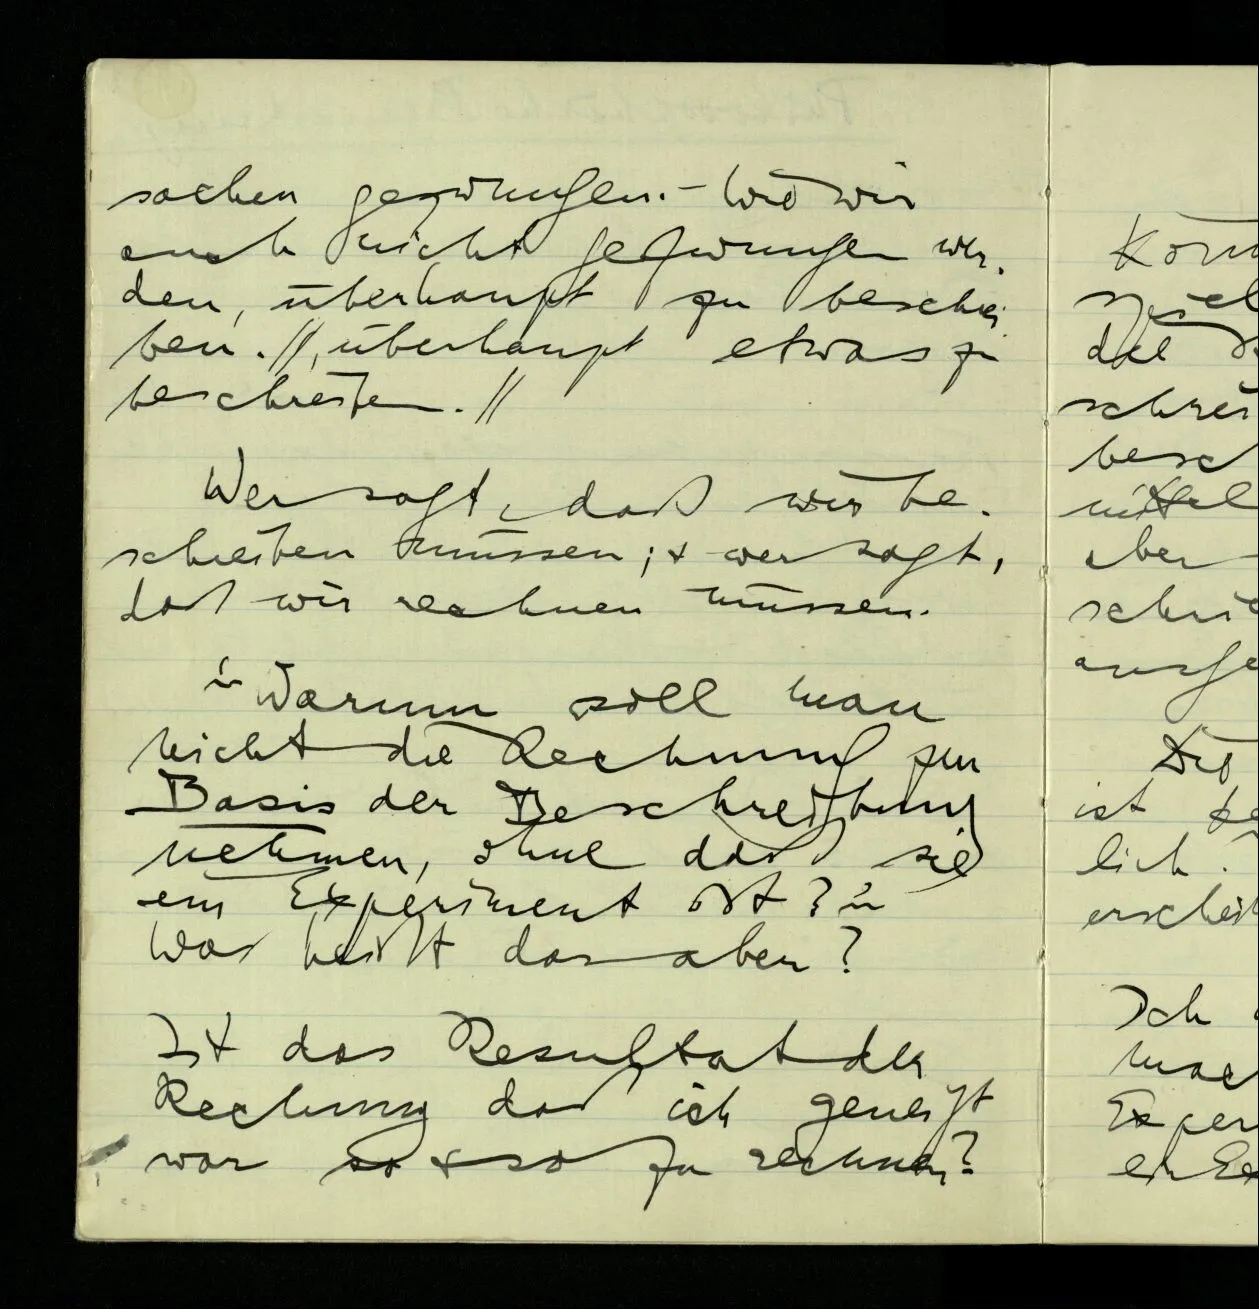 sachen gezwungen. – Wie wir
auch nicht gezwungen wer-
den, überhaupt zu beschrei-
ben. //, überhaupt etwas zu
beschreiben. //
Wer sagt, daß wir be-
schreiben müssen; & wer sagt,
daß wir rechnen müssen.
"Warum soll man
nicht die Rechnung zur
Basis der Beschreibung
nehmen, ohne daß sie
ein Experiment ist?"
Was heißt das aber?
Ist das Resultat der
Rechnung daß ich geneigt
war so & so zu rechnen?
die
schrei
besch
aber
ist
lich.
Ich
Exper